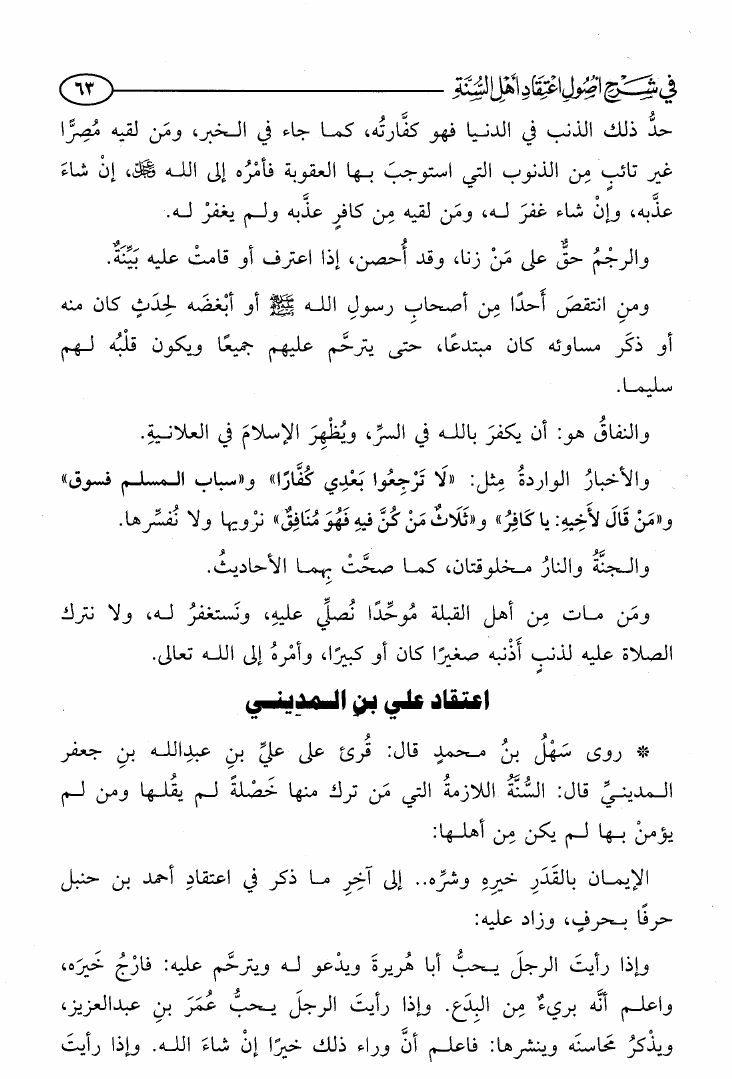 في شرح أصول اعتقاد أهل السنة
٦٣
حدُّ ذلك الذنب في الدنيا فهو كفَّارتُه، كمـا جاء في الـخبر، ومَن لقيه مُصِرًّا
غير تائبٍ مِن الذنوب التي استوجبَ بـها العقوبة فأمْرُه إلى اللـه ﷻ، إنْ شاءَ
عذَّبه، وإنْ شاء غفرَ لـه، ومَن لقيه مِن كافرٍ عذَّبه ولـم يغفرْ لـه.
والرجْمُ حقٌّ على مَنْ زنا، وقد أُحصن، إذا اعترف أو قامتْ عليه بَيِّنَةٌ.
ومنِ انتقصَ أَحدًا مِن أصحابِ رسولِ اللـه ﷺ أو أبْغضَه لِحدَثٍ كان منه
أو ذكَر مساوئه كان مبتدعًا، حتى يترحَّم عليهم جميعًا ويكون قلْبُه لـهم
سليمـا.
والنفاقُ هو: أن يكفرَ باللـه في السرِّ، ويُظْهِرَ الإسلامَ في العلانـيةِ.
والأخبارُ الواردةُ مِثل: «لَا تَرْجِعُوا بَعْدِي كُفَّارًا» و«سباب الـمسلـم فسوق»
و«مَنْ قَالَ لأَخِيهِ: يا كَافِرُ» و«ثَلَاثٌ مَنْ كُنَّ فيهِ فَهُوَ مُنَافِقٌ» نرْويها ولا نُفسِّرها.
والـجنَّةُ والنارُ مـخلوقتان، كمـا صحَّتْ بِهمـا الأحاديثُ.
ومَن مـات مِن أهل القبلة مُوحِّدًا نُصلِّي عليهِ، ونَستغفرُ لـه، ولا نترك
الصلاة عليه لذنبٍ أَذْنبه صغيرًا كان أو كبيرًا، وأمْرهُ إلى اللـه تعالى.
اعتقاد علي بنِ الـمديني
* روى سَهْلُ بنُ محمدٍ قال: قُرئ على عليِّ بنِ عبداللـه بنِ جعفر
الـمدينيِّ قال: السُّنَّةُ اللازمةُ التي مَن ترك منها خَصْلةً لـم يقُلـها ومن لـم
يؤمنْ بـها لـم يكن مِن أهلـها:
الإيمـان بالقَدَرِ خيرِهِ وشرِّه.. إلى آخِرِ مـا ذكر في اعتقادِ أحمد بن حنبل
حرفًا بـحرفٍ، وزاد عليه:
وإذا رأيتَ الرجلَ يـحبُّ أبا هُريرةَ ويدْعو لـه ويترحَّم عليه: فارْجُ خَيرَه،
واعلـم أنَّه بريءٌ مِن البِدَع. وإذا رأيتَ الرجلَ يـحبُّ عُمَرَ بنِ عبدالعزيز،
ويذْكرُ مَحَاسنَه وينشرها: فاعلـم أنَّ وراء ذلك خيرًا إنْ شاءَ اللـه. وإذا رأيتَ